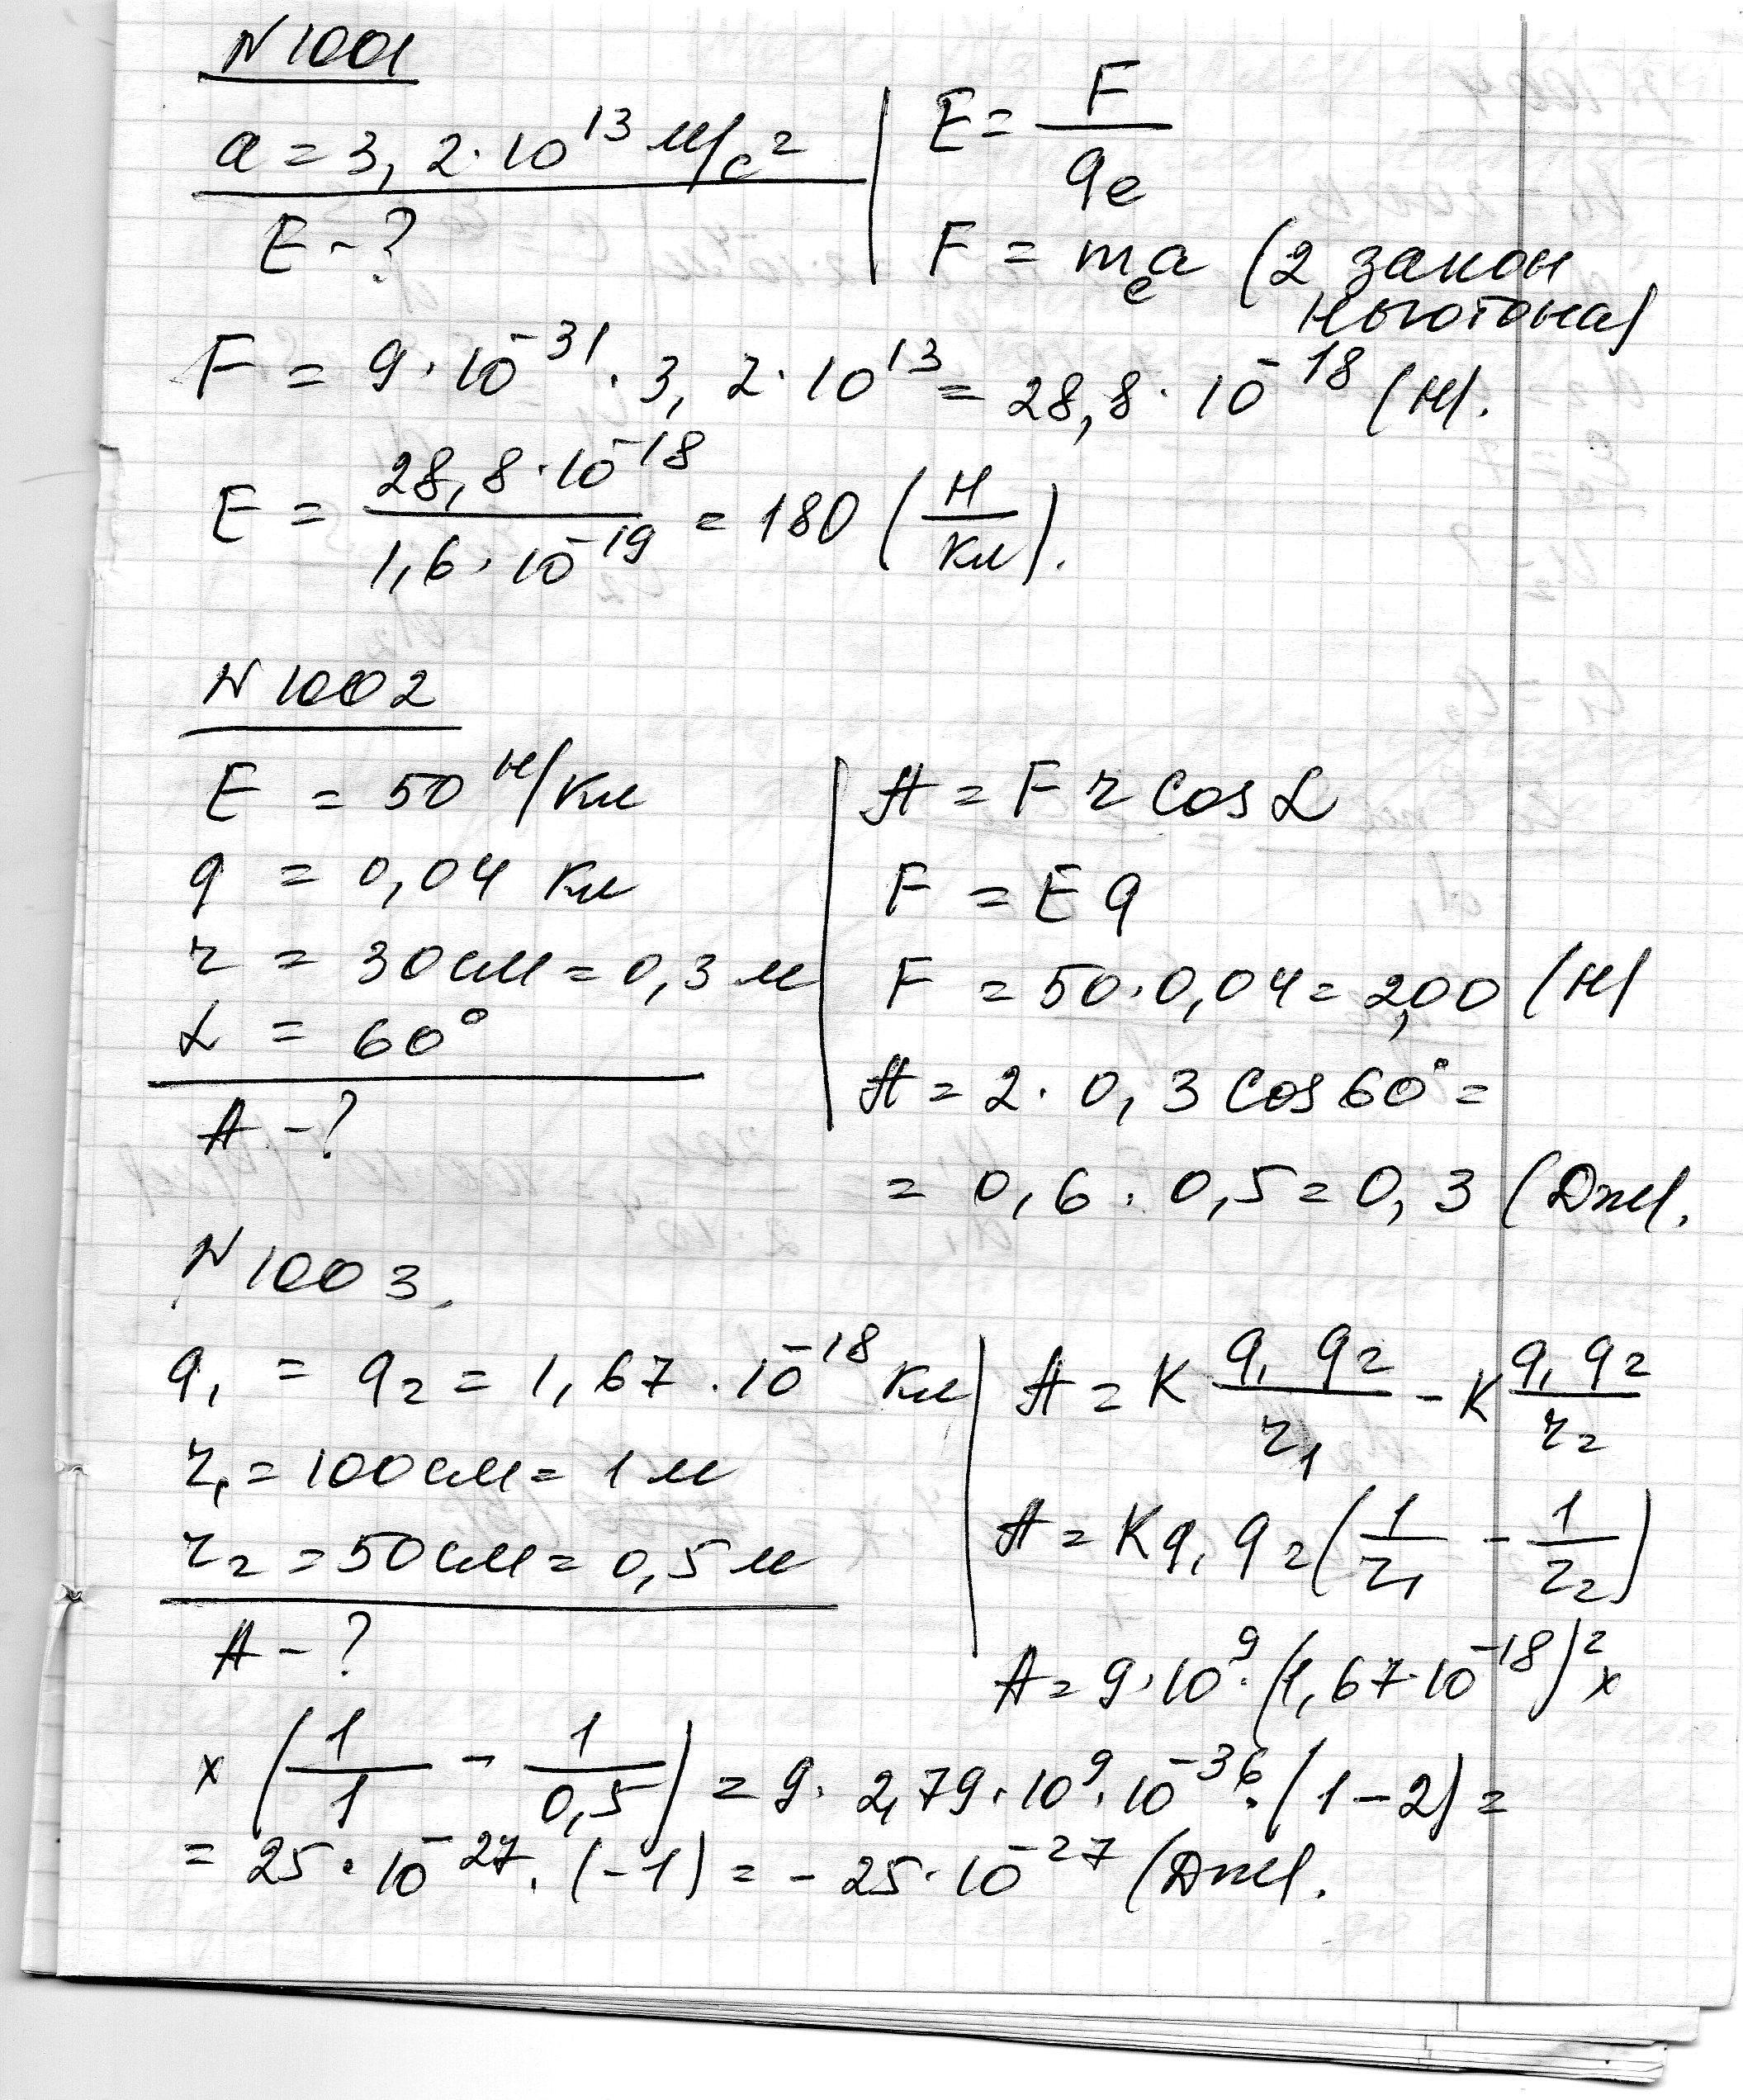 N 1001
a = 3,2·10¹³ м/с²
E - ?
E = F/qₑ
F = mₑa (2 закон
Ньютона)
F = 9·10⁻³¹ · 3,2·10¹³ = 28,8·10⁻¹⁸ (Н).
E = 28,8·10⁻¹⁸ / 1,6·10⁻¹⁹ = 180 (Н/Кл).
N 1002
E = 50 Н/Кл
q = 0,04 Кл
r = 30 см = 0,3 м
α = 60°
A - ?
A = F r cos α
F = E q
F = 50·0,04 = 2,00 (Н)
A = 2·0,3 cos 60° =
= 0,6 · 0,5 = 0,3 (Дж).
N 1003.
q₁ = q₂ = 1,67·10⁻¹⁸ Кл
r₁ = 100 см = 1 м
r₂ = 50 см = 0,5 м
A - ?
A = K q₁q₂/r₁ - K q₁q₂/r₂
A = K q₁q₂ (1/r₁ - 1/r₂)
A = 9·10⁹·(1,67·10⁻¹⁸)² ×
× (1/1 - 1/0,5) = 9·2,79·10⁹·10⁻³⁶·(1-2) =
= 25·10⁻²⁷·(-1) = -25·10⁻²⁷ (Дж).